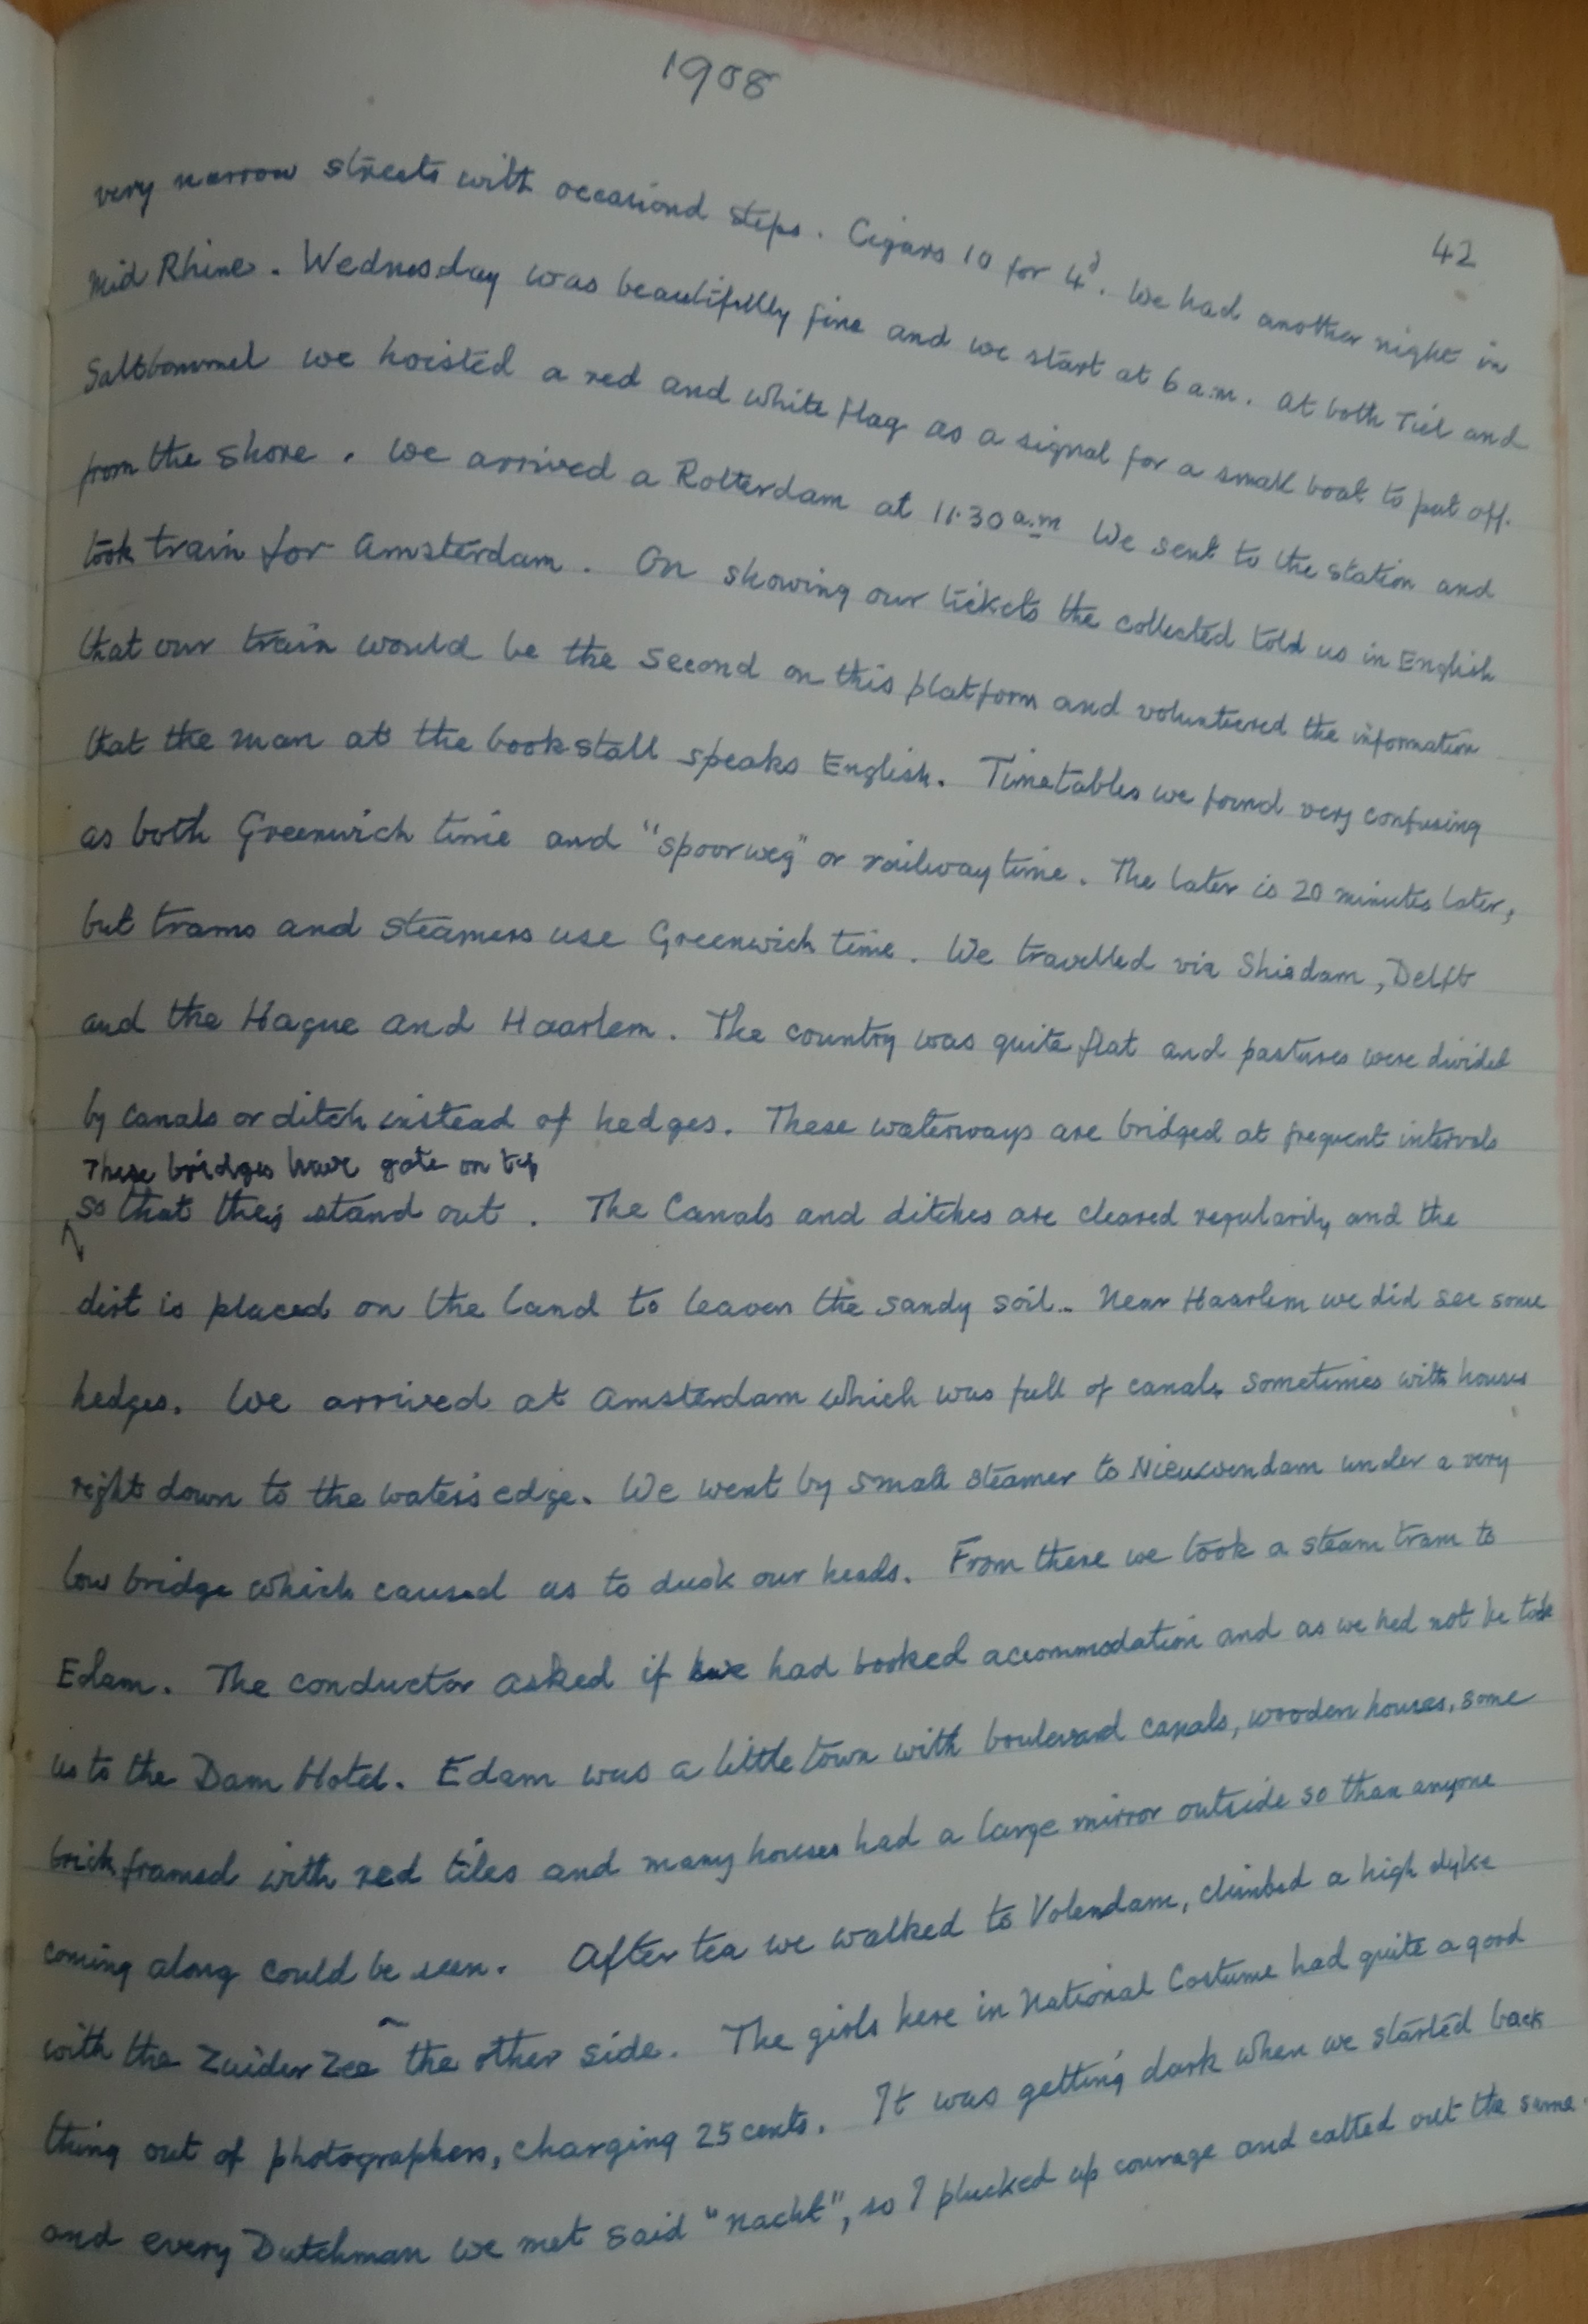 1908
42
very narrow streets with occasional steps. Cigars 10 for 4d. We had another night in
mid Rhine. Wednesday was beautifully fine and we start at 6 a.m. At both Tiel and
Saltbommel we hoisted a red and white flag as a signal for a small boat to put off.
from the shore. We arrived a Rotterdam at 11.30 a.m We sent to the station and
took train for Amsterdam. On showing our tickets the collected told us in English
that our train would be the second on this platform and volunteered the information
that the man at the bookstall speaks English. Timetables we found very confusing
as both Greenwich time and "spoorweg" or railway time. The later is 20 minutes later,
but trams and steamers use Greenwich time. We travelled via Shiedam, Delft
and the Hague and Haarlem. The country was quite flat and pastures were divided
by canals or ditch instead of hedges. These waterways are bridged at frequent intervals
These bridges have gate on top
so that they stand out. The Canals and ditches are cleared regularily and the
dirt is placed on the land to leaven the sandy soil. Near Haarlem we did see some
hedges. We arrived at Amsterdam which was full of canals sometimes with houses
right down to the waters edge. We went by small steamer to Nieuwendam under a very
low bridge which caused us to duck our heads. From there we took a steam tram to
Edam. The conductor asked if we had booked acommodation and as we had not he took
us to the Dam Hotel. Edam was a little town with boulevard canals, wooden houses, some
brick framed with red tiles and many houses had a large mirror outside so than anyone
coming along could be seen. After tea we walked to Volendam, climbed a high dyke
with the Zuider Zee the other side. The girls here in National Costume had quite a good
thing out of photographers, charging 25 cents. It was getting dark when we started back
and every Dutchman we met said "nacht", so I plucked up courage and called out the same.